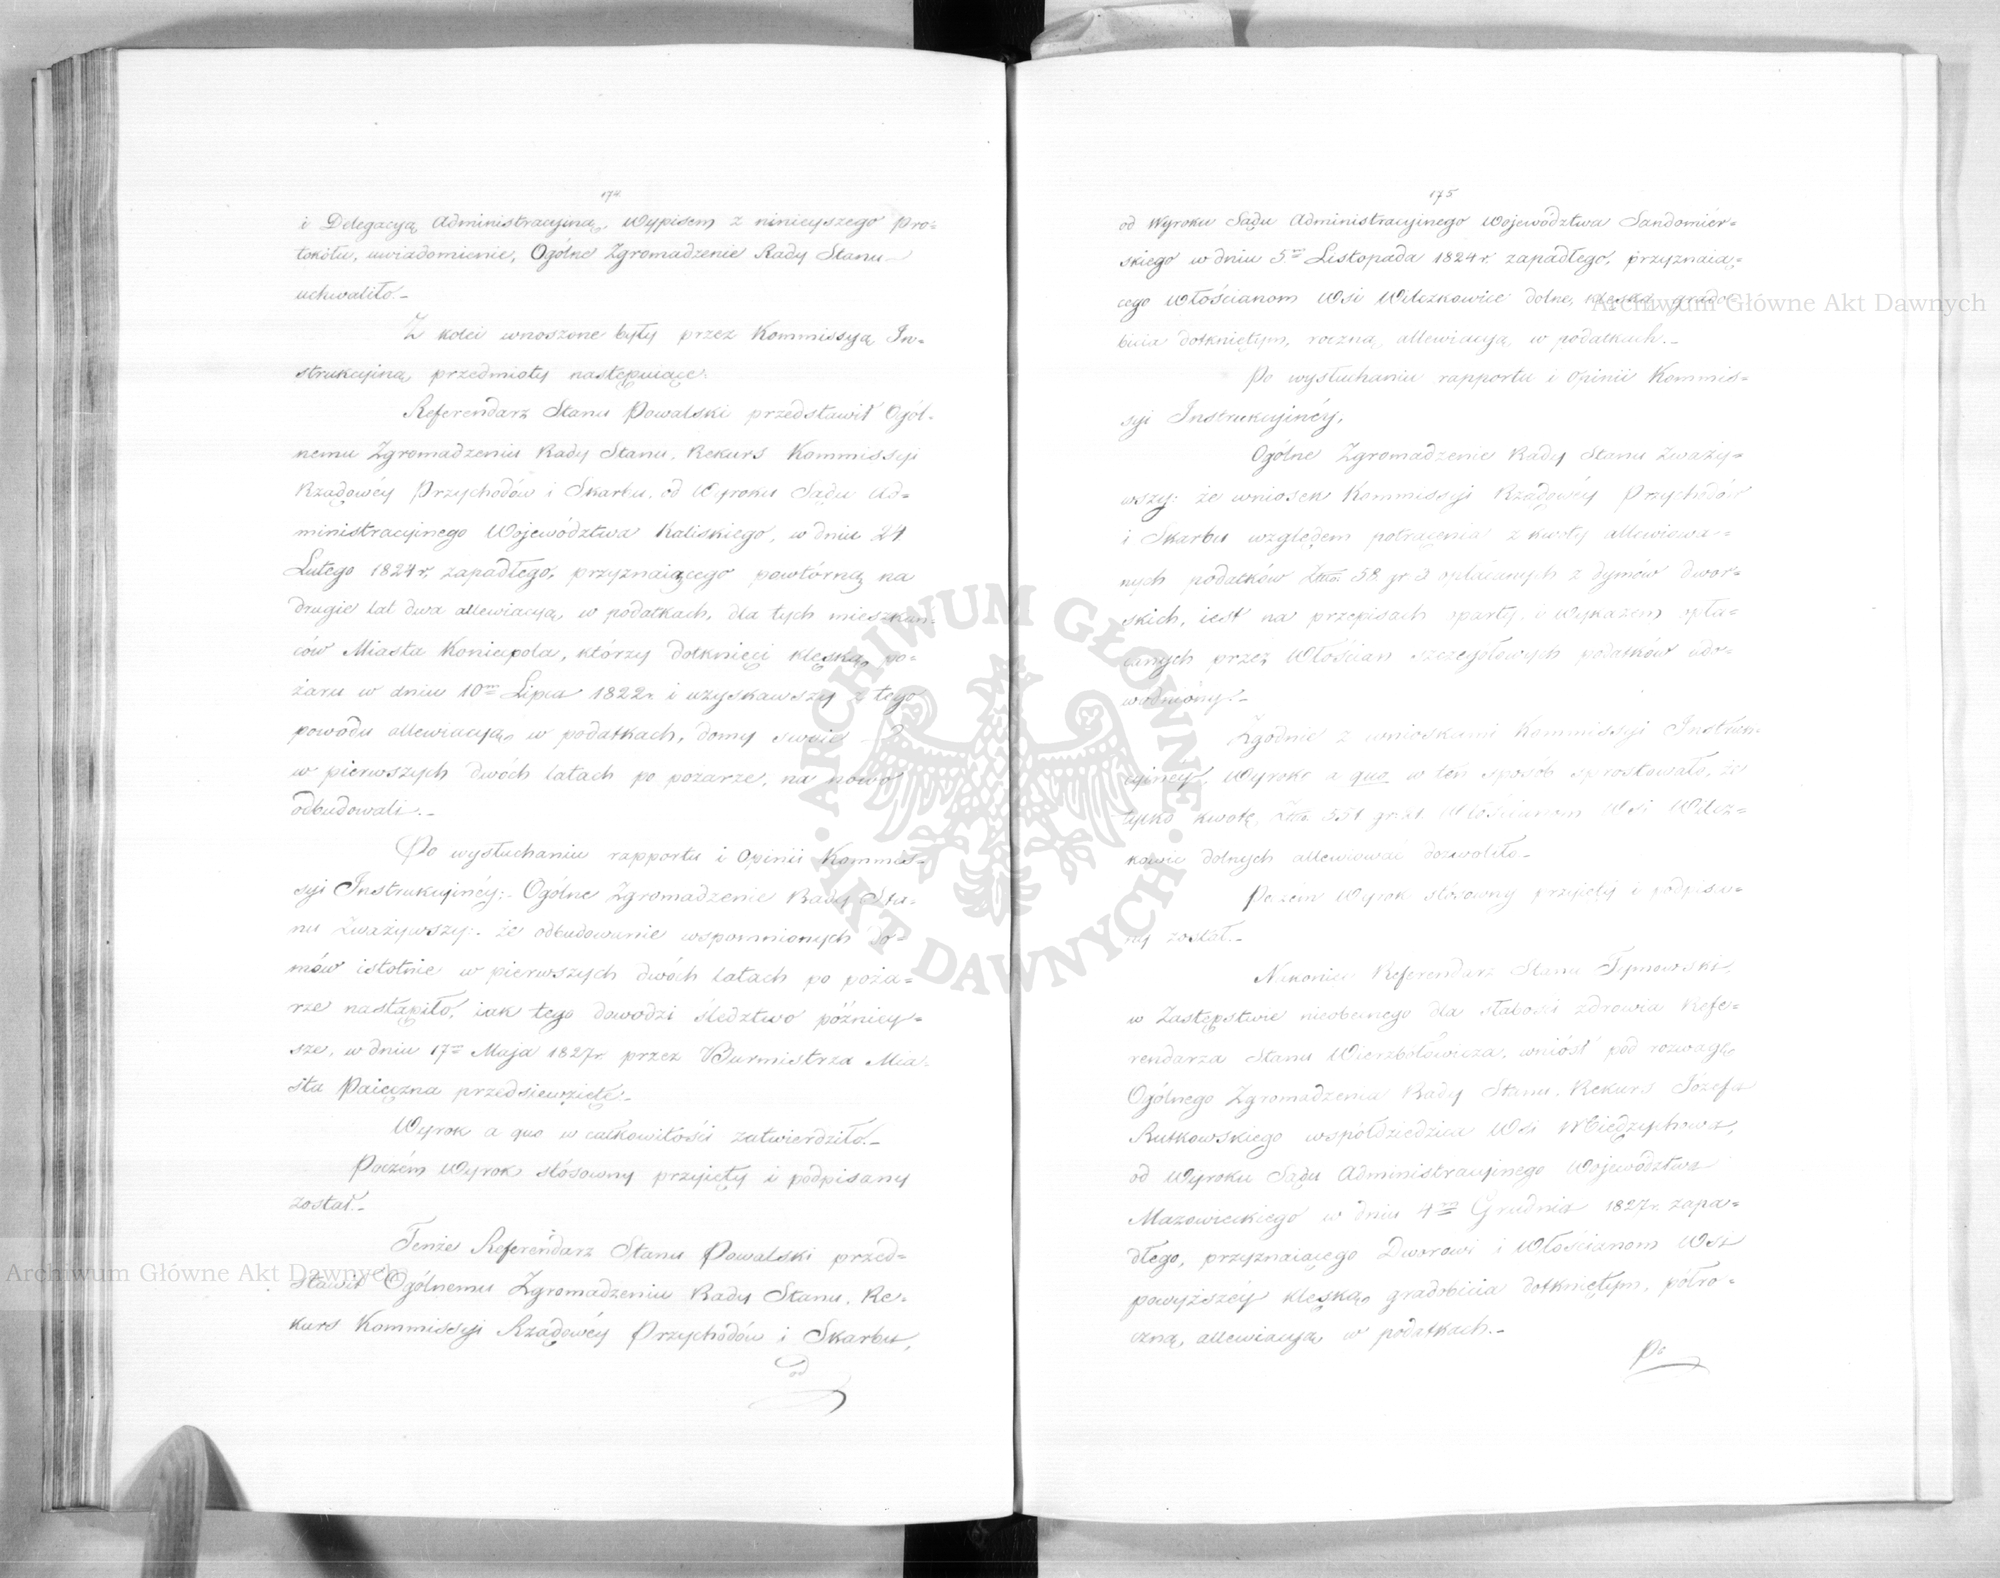 174.
i Delegacyą Administracyjną, Wypisem z ninieyszego Pro-
tokółu, uwiadomienie, Ogólne Zgromadzenie Rady Stanu
uchwaliło.-
Z kolei wnoszone były przez Kommissyą In-
strukcyiną przedmioty następuiące:
Referendarz Stanu Powalski przedstawił Ogól-
nemu Zgromadzeniu Rady Stanu, Rekurs Kommissyi
Rządowéy Przychodów i Skarbu, od Wyroku Sądu Ad-
ministracyjnego Województwa Kaliskiego, w dniu 24
Lutego 1824 r. zapadłego, przyznaiącego powtórną na
drugie lat dwa allewiacyą, w podatkach, dla tych mieszkań-
ców Miasta Koniecpola, którzy dotknięci klęską po-
żaru w dniu 10m Lipca 1822 r. i uzyskawszy z tego
powodu allewiacyą w podatkach, domy swoie
w pierwszych dwóch latach po pożarze, na nowo
odbudowali.-
Po wysłuchaniu rapportu i Opinii Kommis-
syi Instrukcyinéy: Ogólne Zgromadzenie Rady Sta-
nu Zważywszy: że odbudowanie wspomnionych do-
mów istotnie w pierwszych dwóch latach po poża-
rze nastąpiło, iak tego dowodzi śledztwo późniey-
sze, w dniu 17m Maja 1827 r. przez Burmistrza Mia-
sta Paięczna przedsiewzięte.-
Wyrok a quo w całkowitości zatwierdziło.-
Poczém Wyrok stósowny przyięty i podpisany
został.-
Tenże Referendarz Stanu Powalski przed-
stawił Ogólnemu Zgromadzeniu Rady Stanu, Re-
kurs Kommissyi Rządowéy Przychodów i Skarbu,
od
175
od Wyroku Sądu Administracyjnego Województwa Sandomiér-
skiego w dniu 5m Listopada 1824 r. zapadłego, przyznaią-
cego Włościanom Wsi Wilczkowice dolne, klęską grado-
bicia dotkniętym, roczną allewiacyą w podatkach.-
Po wysłuchaniu rapportu i Opinii Kommis-
syi Instrukcyinéy,
Ogólne Zgromadzenie Rady Stanu Zważy-
wszy: że wniosek Kommissyi Rządowéy Przychodów
i Skarbu względem potrącenia z kwoty allewiowa-
nych podatków Złtt. 58 gr. 3 opłacanych z dymów dwor-
skich, iest na przepisach oparty, i Wykazem opła-
canych przez Włościan szczegółowych podatków udo-
wodniony.-
Zgodnie z wnioskami Kommissyi Instruk-
cyinéy, Wyrok a quo w ten sposób sprostowało, że
tylko kwotę Złtt. 551 gr. 21 Włościanom Wsi Wilcz-
kowic dolnych allewiować dozwoliło.-
Poczém Wyrok stósowny przyięty i podpisa-
ny został.-
Nakoniec Referendarz Stanu Tymowski,
w Zastępstwie nieobecnego dla słabości zdrowia Refe-
rendarza Stanu Wierzbołowicza, wniósł pod rozwagę
Ogólnego Zgromadzenia Rady Stanu, Rekurs Józefa
Rutkowskiego współdziedzica Wsi Miedzychowa,
od Wyroku Sądu Administracyjnego Województwa
Mazowieckiego w dniu 4m Grudnia 1827 r. zapa-
dłego, przyznaiącego Dworowi i Włościanom Wsi
powyższéy klęską gradobicia dotkniętym, półro-
czną, allewiacyą w podatkach.-
Po
Archiwum Główne Akt Dawnych
Archiwum Główne Akt Dawnych
ARCHIWUM GŁÓWNE AKT DAWNYCH